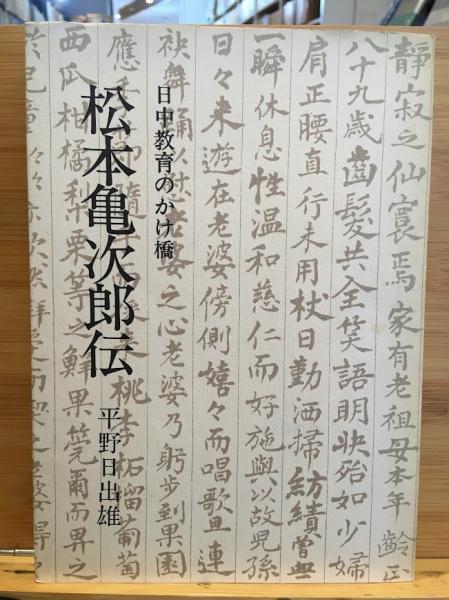 日中教育のかけ橋
松本亀次郎伝
平野日出雄
靜寂之仙寰焉家有老祖母本年齡正
八十九歳齒髮共全笑語明快殆如少婦
肩正腰直行未用杖日勤洒掃紡績曽無
一瞬休息性温和慈仁而好施與以故児孫
日々来遊在老婆傍側嬉々而唱歌且連
袂舞踊以 老婆之心老婆乃躬歩到果園
應手 桃李柘留葡萄
西瓜柑橘梨栗等之鮮果莞爾而畀之
於児童々々